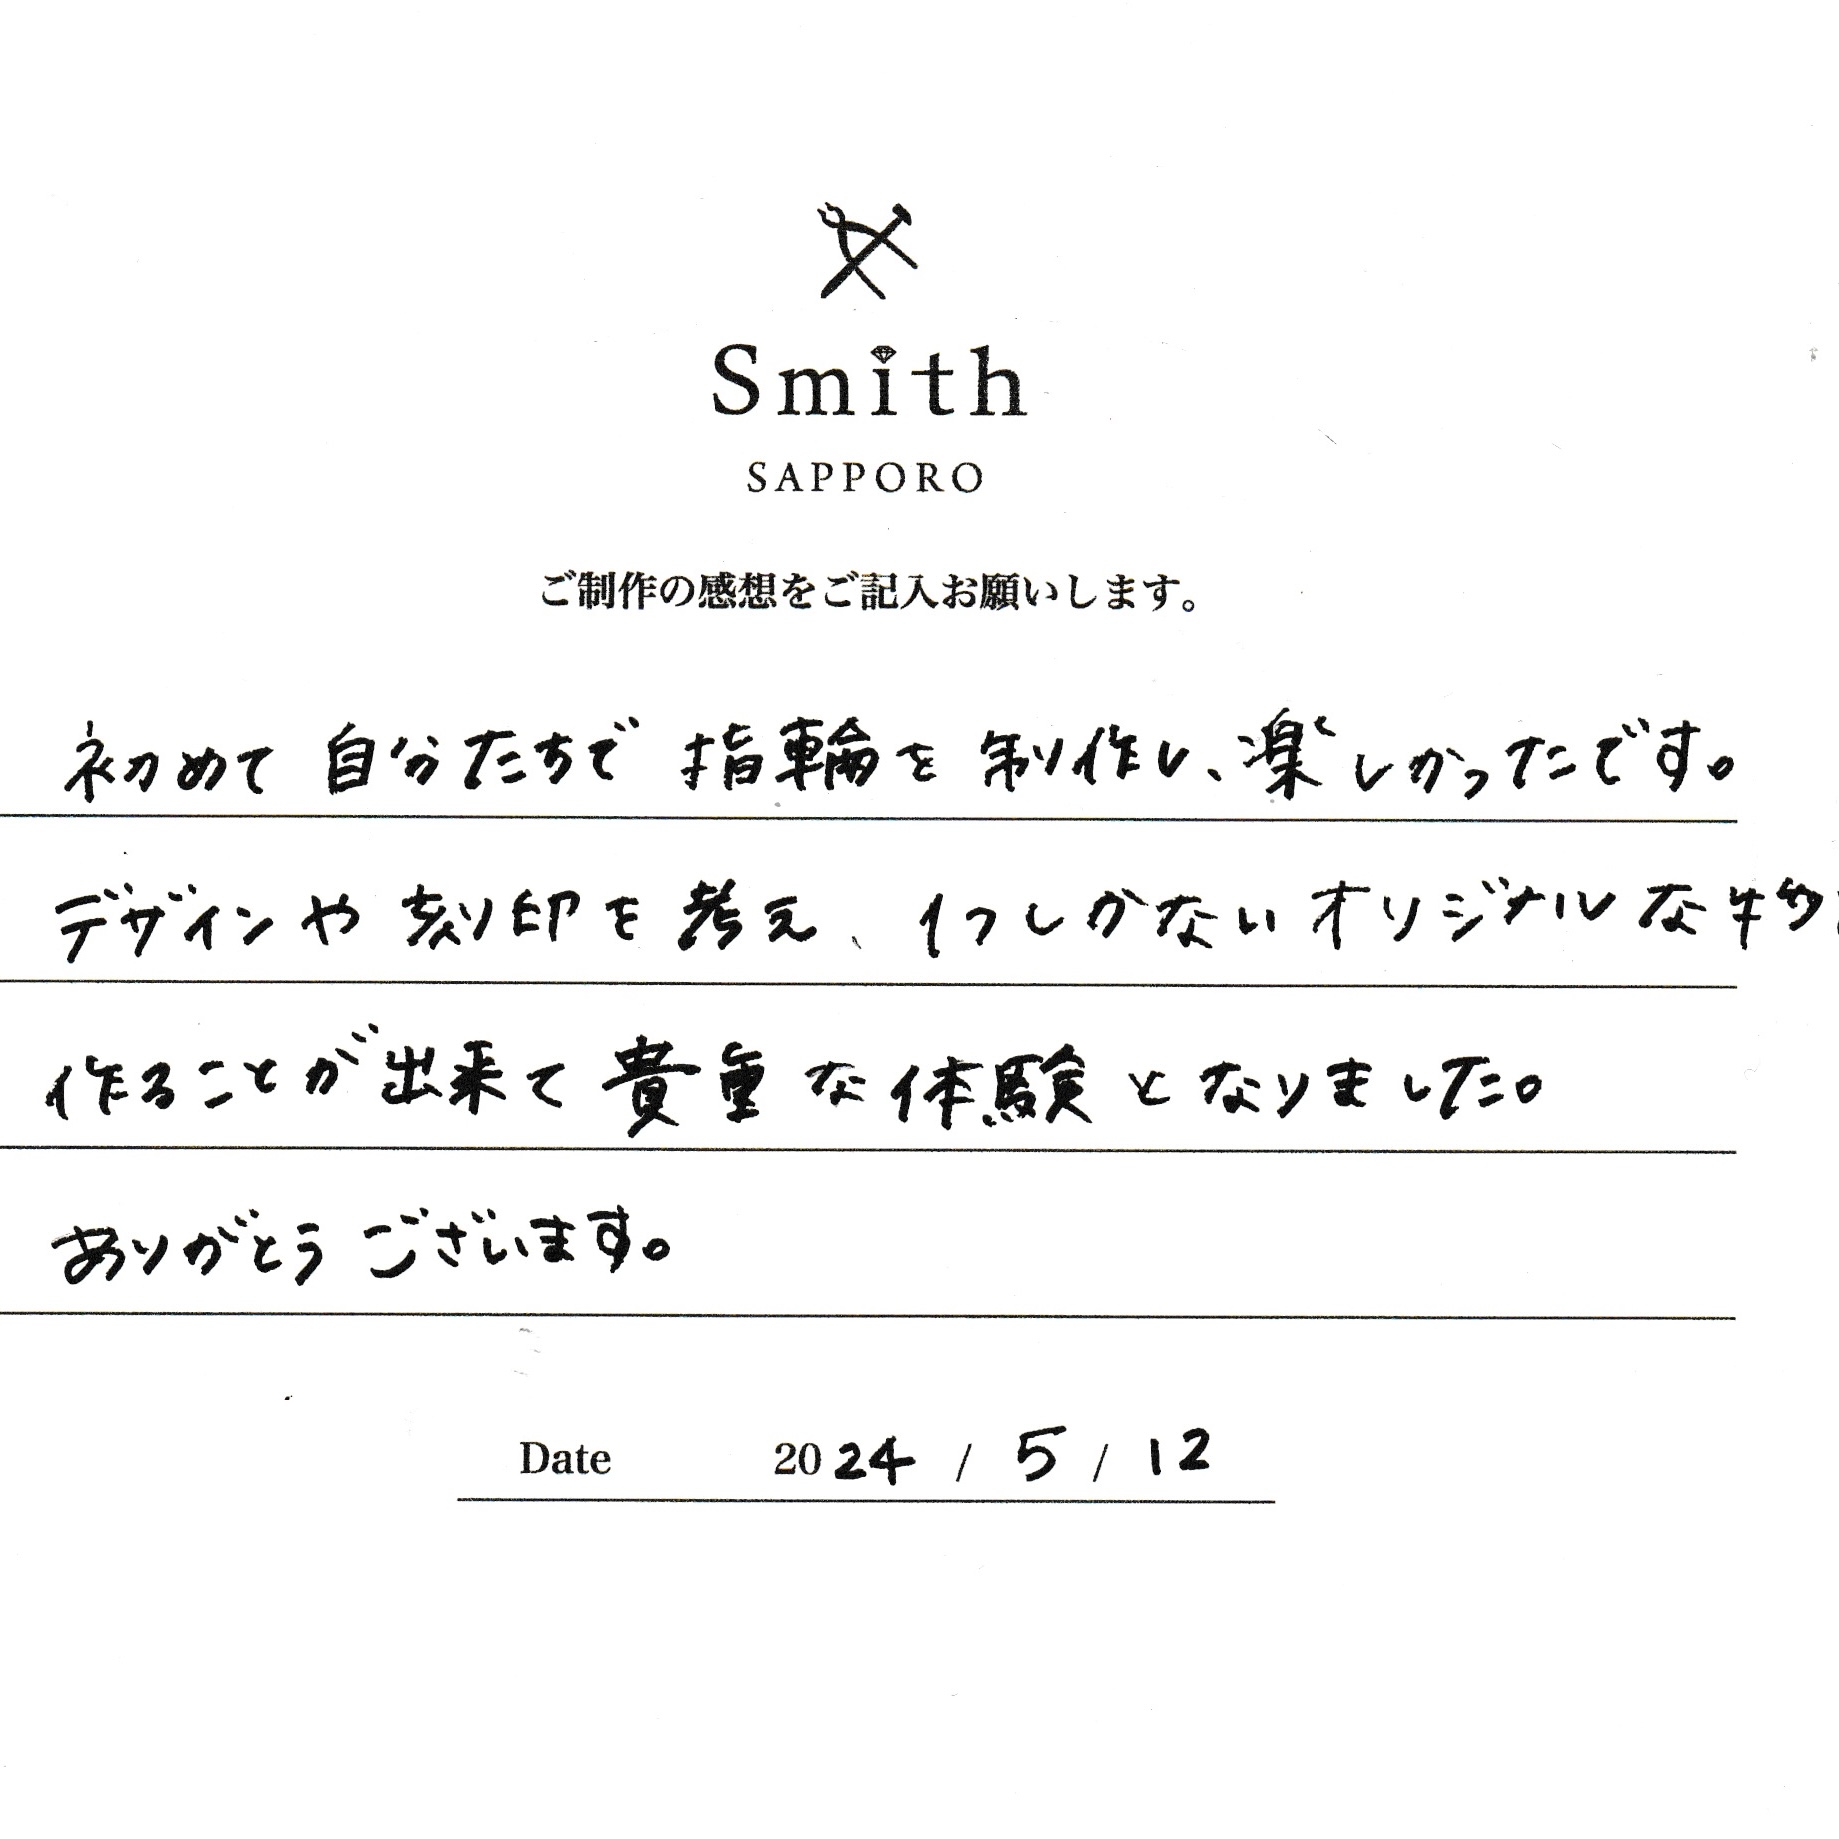 Smith
SAPPORO
ご制作の感想をご記入お願いします。
初めて自分たちで指輪を制作し、楽しかったです。
デザインや刻印を考え、1つしかないオリジナルな物
作ることが出来て貴重な体験となりました。
ありがとうございます。
Date 2024 / 5 / 12